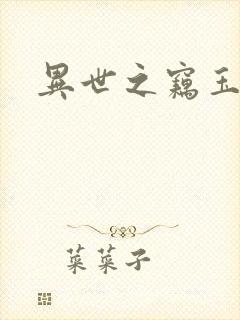 異世之竊玉
菜菜子